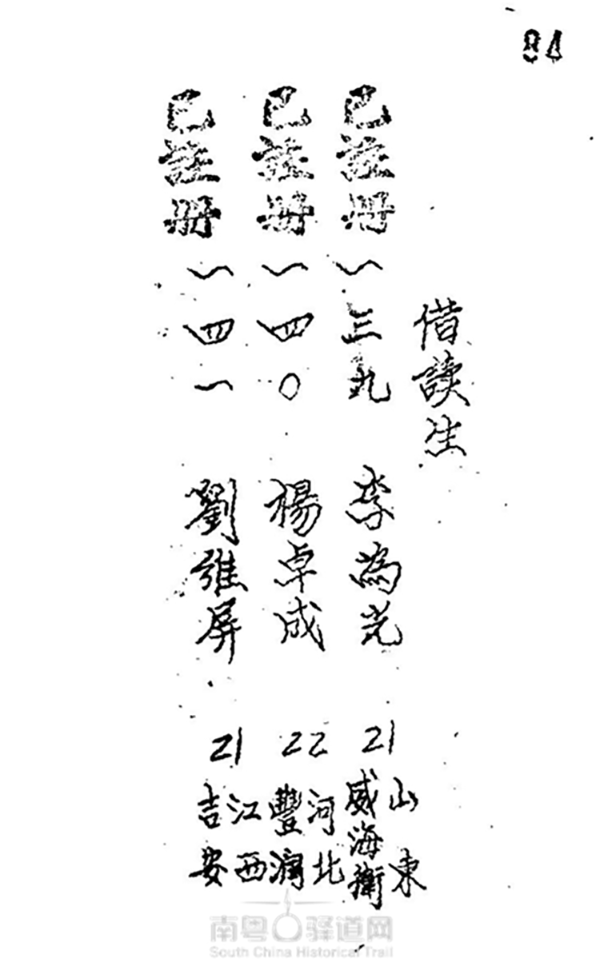 84
借讀生
已註冊 一三九 李為光 21 山東威海衛
已註冊 一四〇 楊卓成 22 河北豐潤
已註冊 一四一 劉維屏 21 江西吉安
南粤驿道网
South China Historical Trail